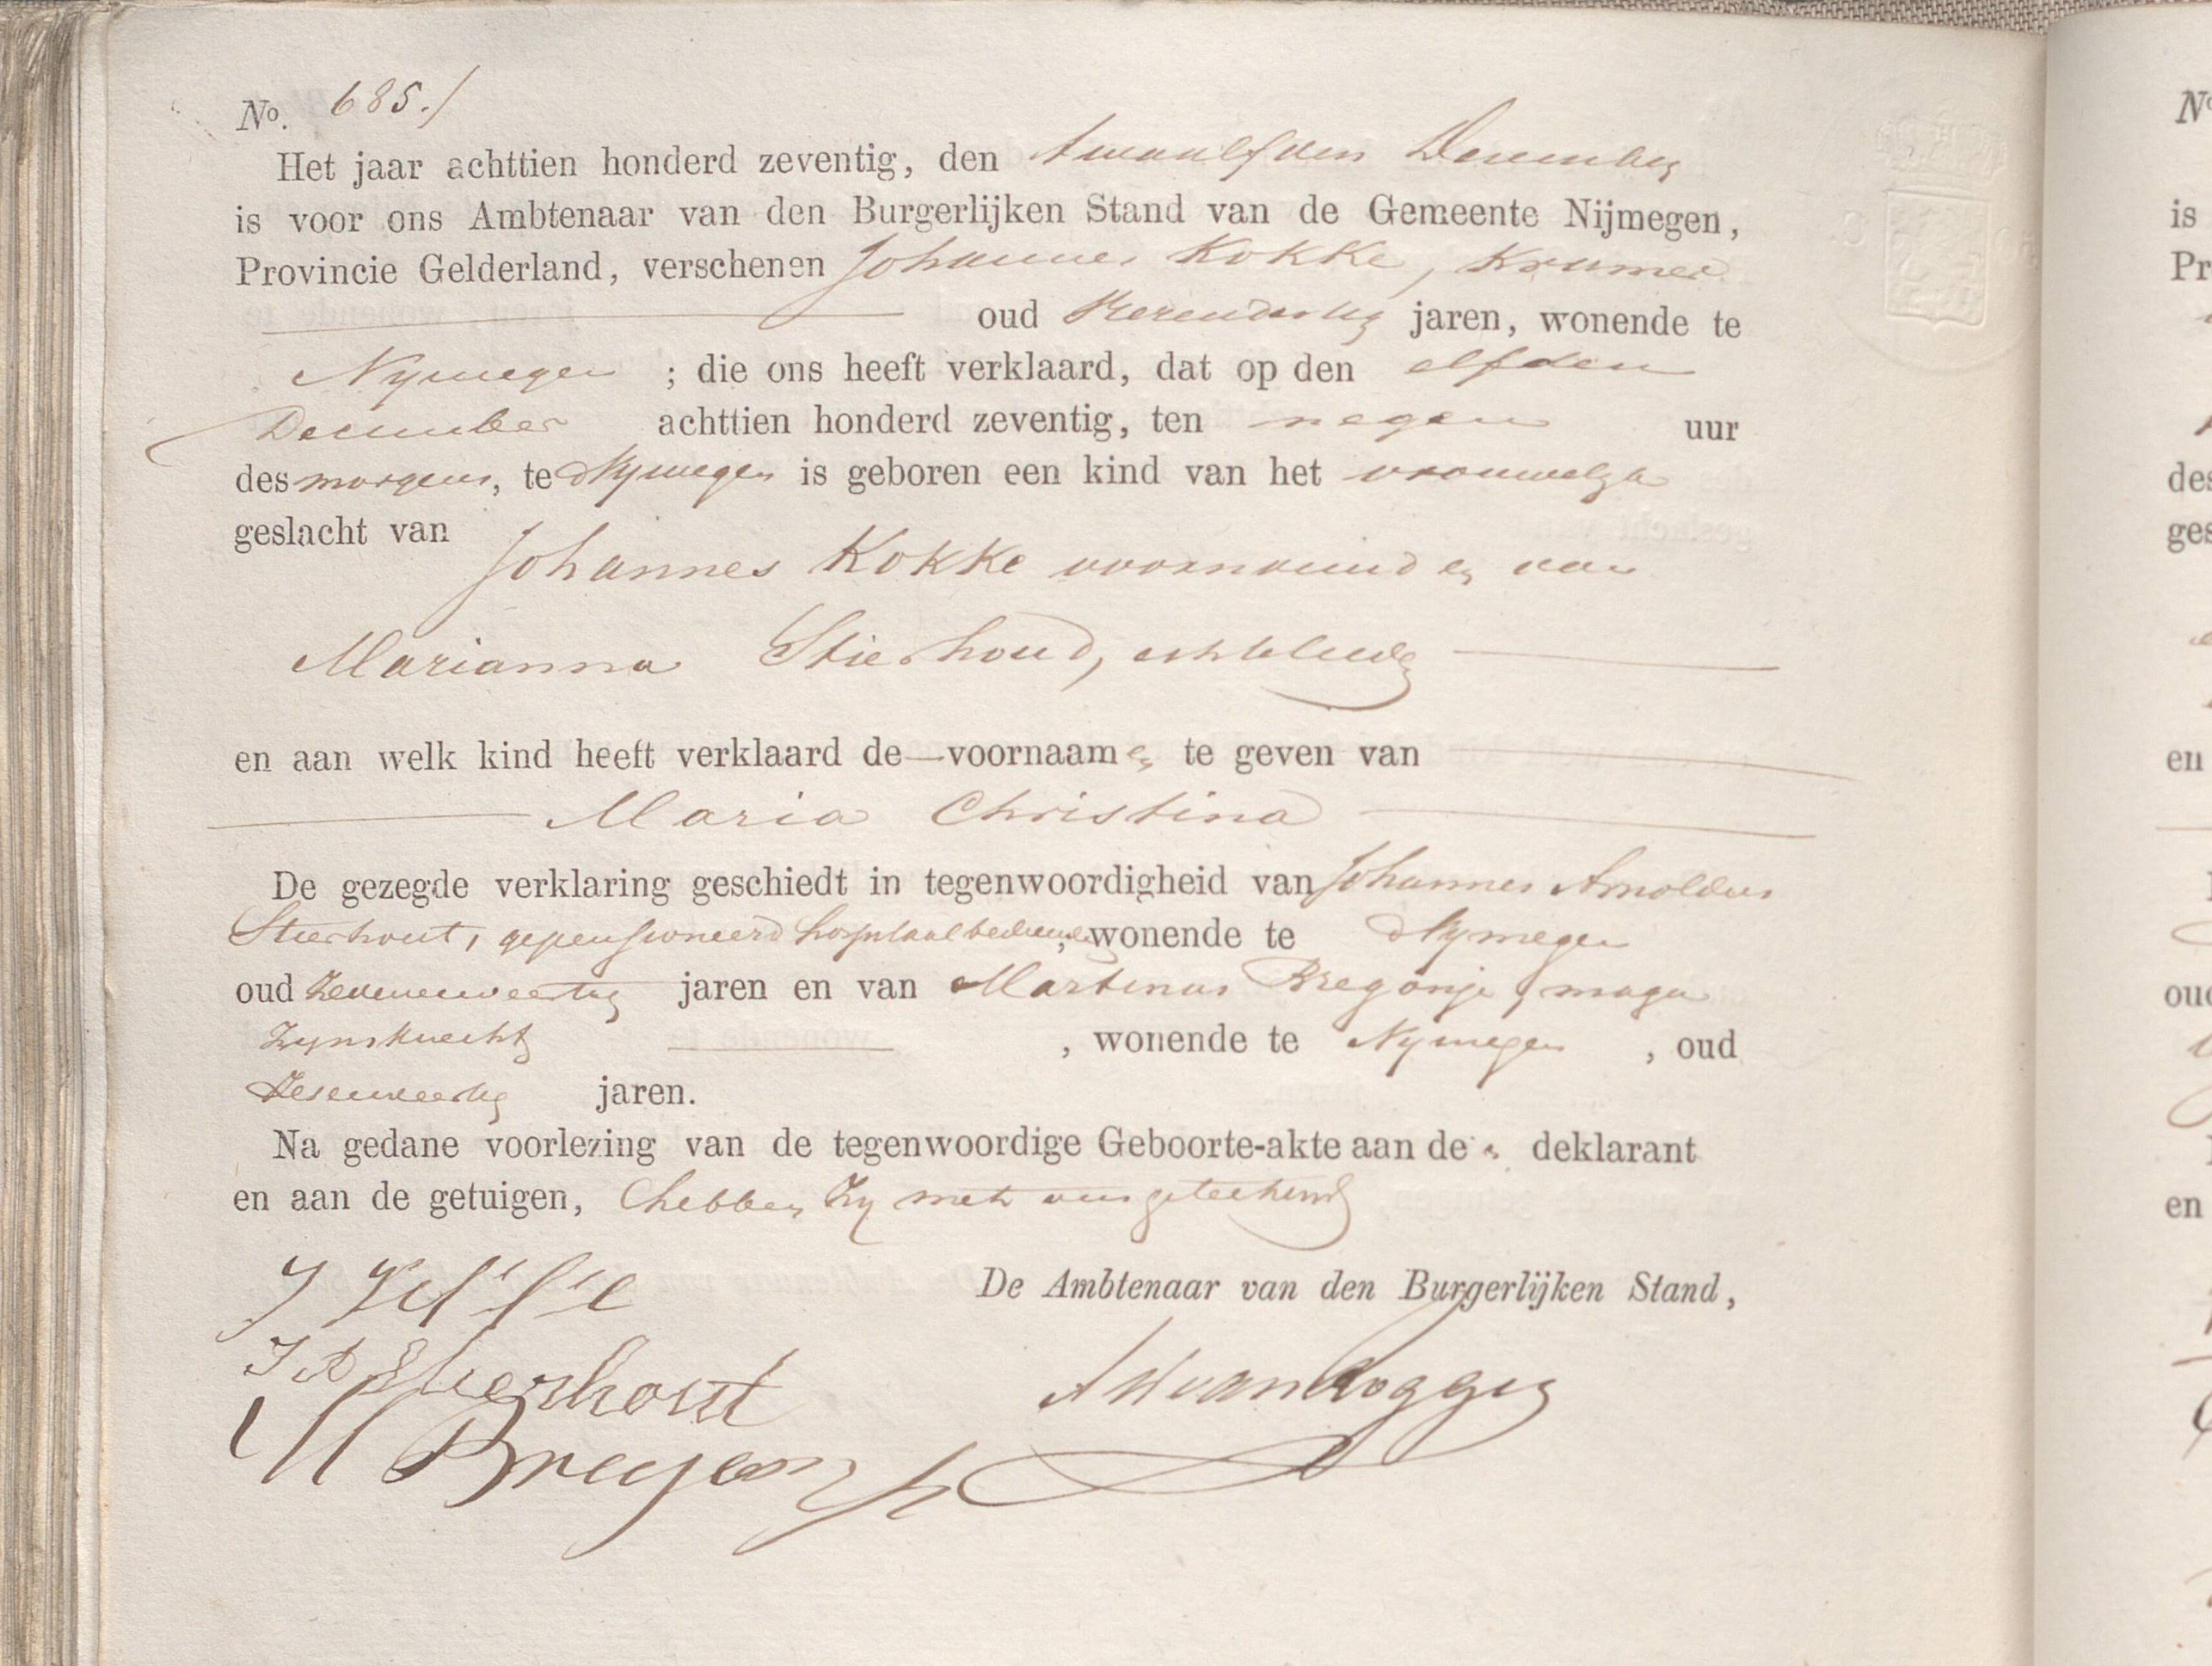 No. 685./
Het jaar achttien honderd zeventig, den twaalfden December
is voor ons Ambtenaar van den Burgerlijken Stand van de Gemeente Nijmegen,
Provincie Gelderland, verschenen Johannes Kokke, Kramer
oud jaren, wonende te
Nymegen ; die ons heeft verklaard, dat op den elfden
December achttien honderd zeventig, ten negen uur
des morgens, te Nymegen is geboren een kind van het vrouwelyk
geslacht van
Johannes Kokke voornoemd en van
Marianna Stierhoud, echtelieden
en aan welk kind heeft verklaard de voornaamen te geven van
Maria Christina
De gezegde verklaring geschiedt in tegenwoordigheid van Johannes Arnoldus
Stierhout, gepensioneerd hospitaalbediende, wonende te Nymegen
oud zevenenveertig jaren en van Martinus Bregonje, maga
zynsknecht , wonende te Nymegen , oud
zesenveertig jaren.
Na gedane voorlezing van de tegenwoordige Geboorte-akte aan den deklarant
en aan de getuigen, hebben zy met ons geteekend
J Kokke
De Ambtenaar van den Burgerlijken Stand,
J A Stierhout
M Bregonje